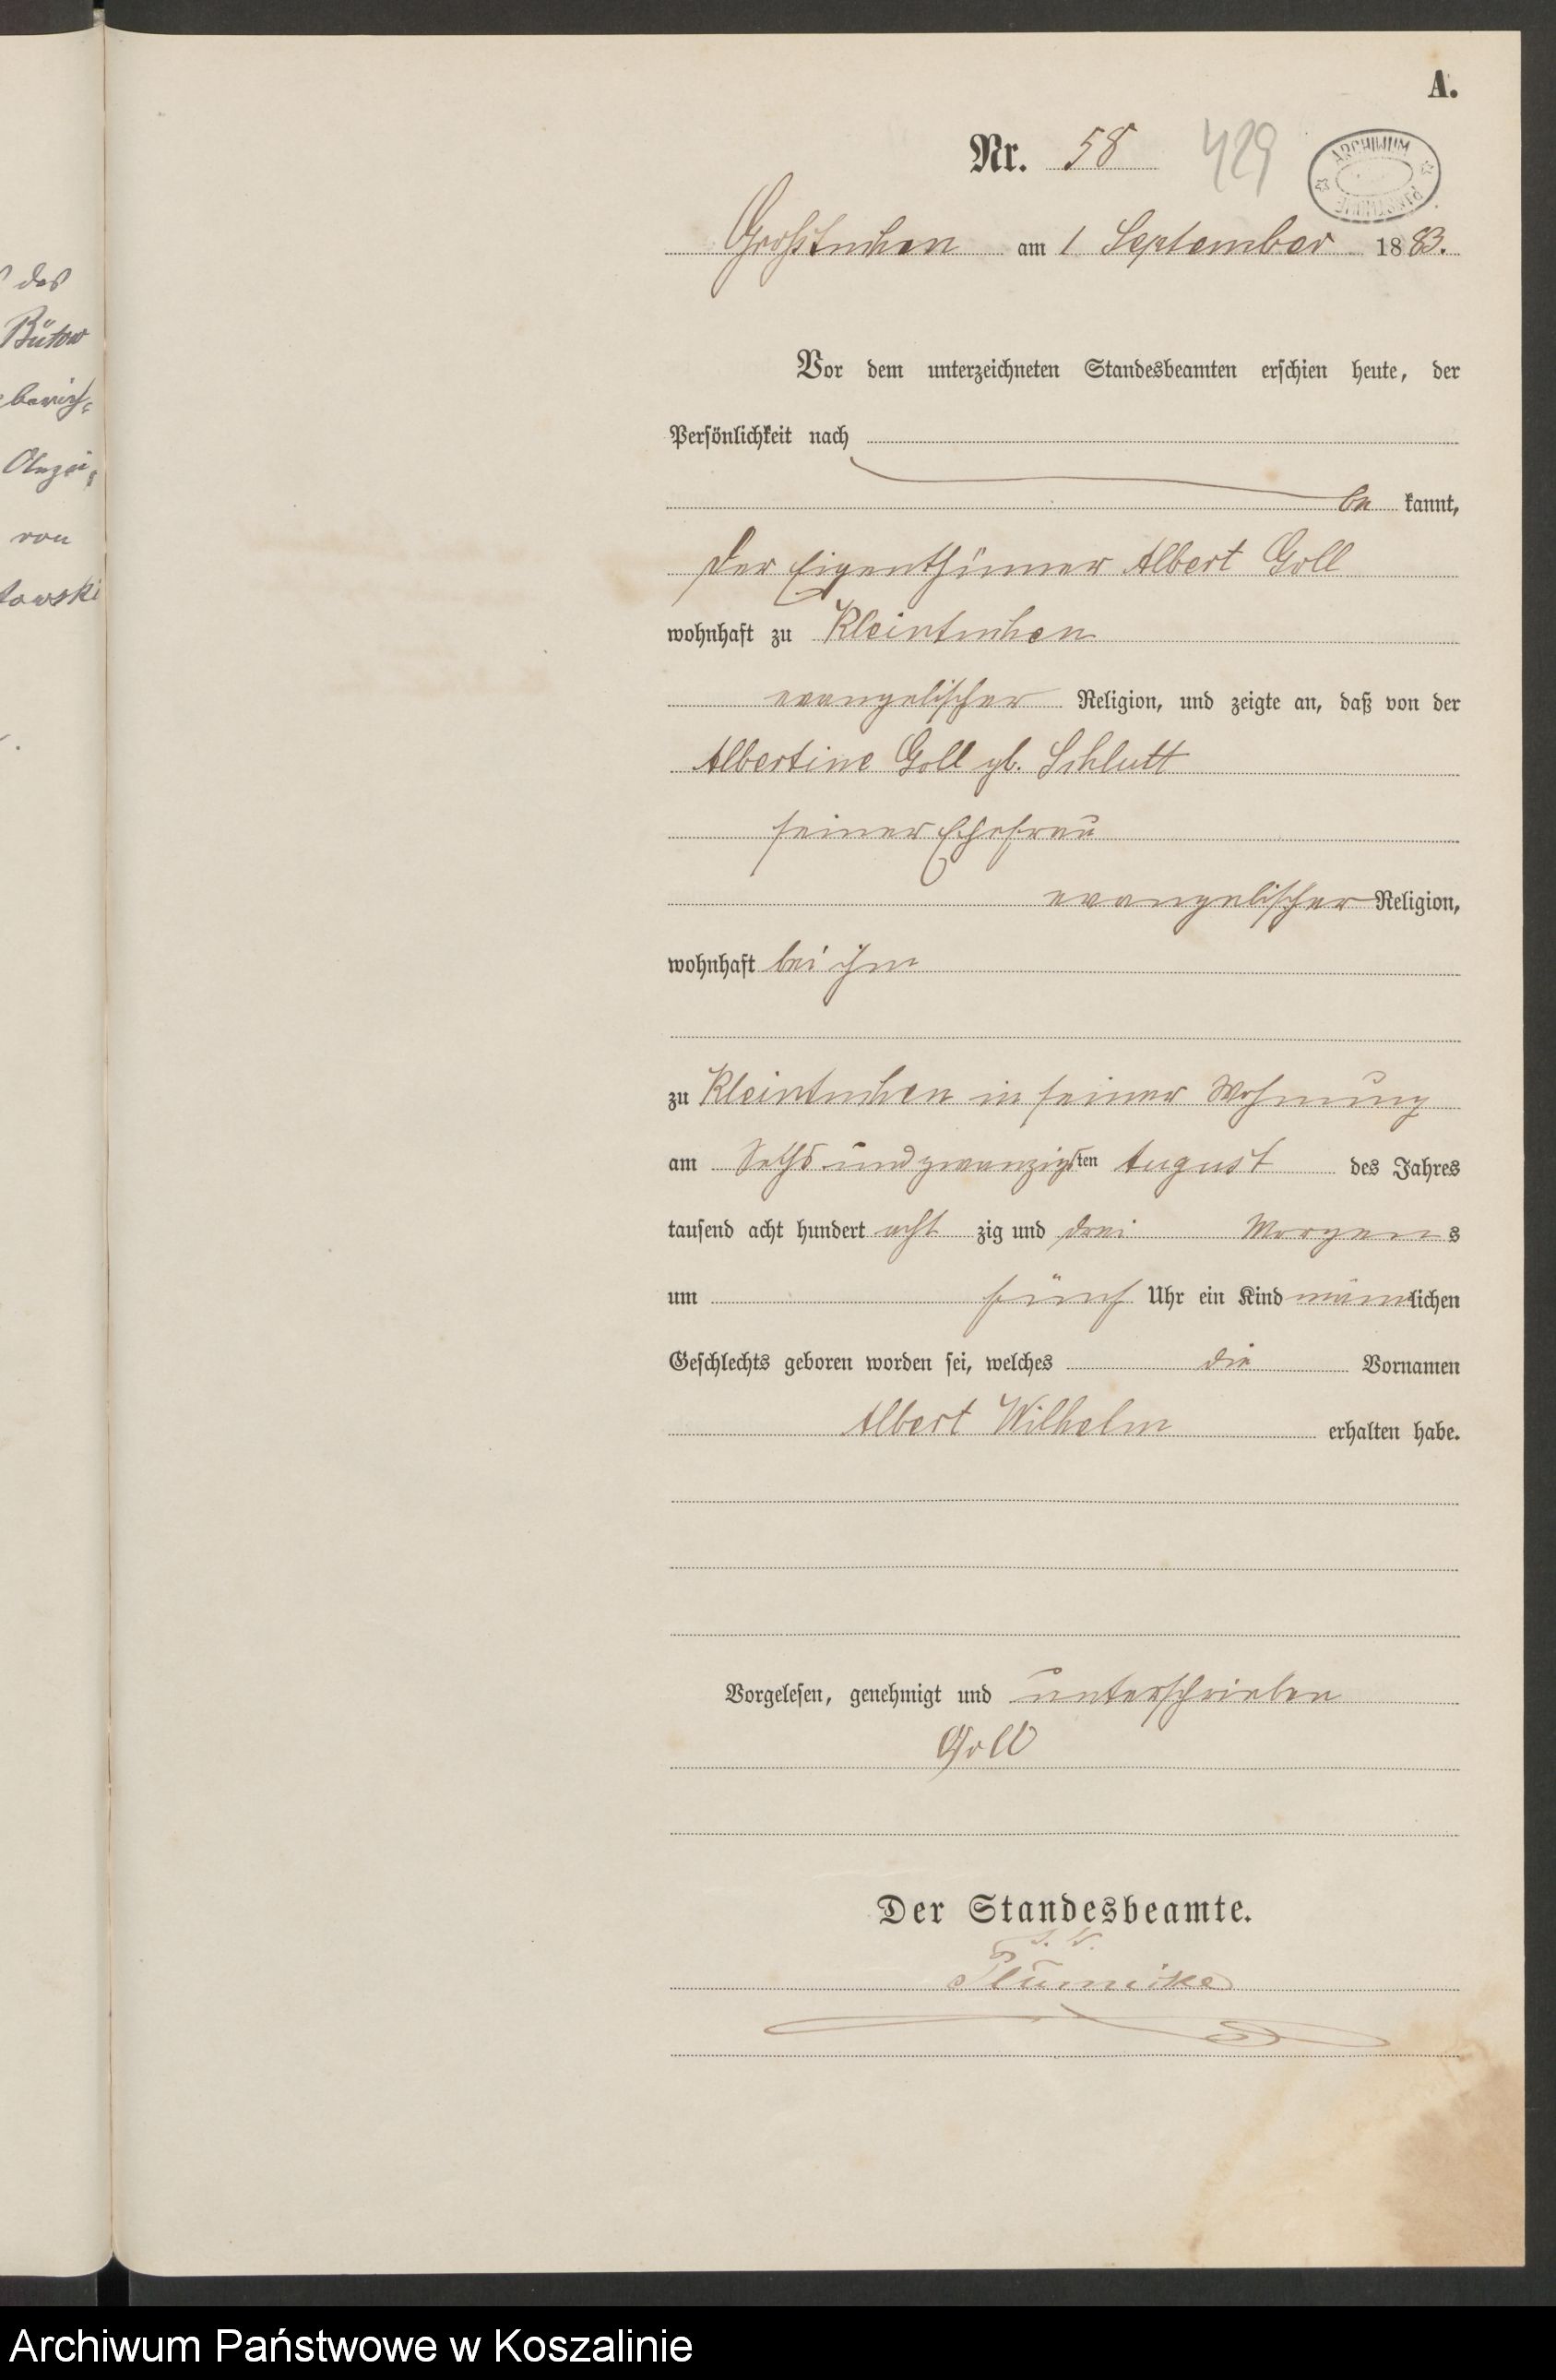 das
Bütow
von
A.
Nr. 58 429
ARCHIWUM PAŃSTWOWE
Großtuchen am 1 September 1883.
Vor dem unterzeichneten Standesbeamten erschien heute, der
Persönlichkeit nach
be kannt,
der Eigenthümer Albert Goll
wohnhaft zu Kleintuchen
evangelischer Religion, und zeigte an, daß von der
Albertine Goll gb. Schlutt
seiner Ehefrau
evangelischer Religion,
wohnhaft bei ihm
zu Kleintuchen in seiner Wohnung
am Sechs und zwanzigsten August des Jahres
tausend acht hundert acht zig und drei Morgens
um fünf Uhr ein Kind männlichen
Geschlechts geboren worden sei, welches die Vornamen
Albert Wilhelm erhalten habe.
Vorgelesen, genehmigt und unterschrieben
Goll
Der Standesbeamte.
Plümicke
Archiwum Państwowe w Koszalinie